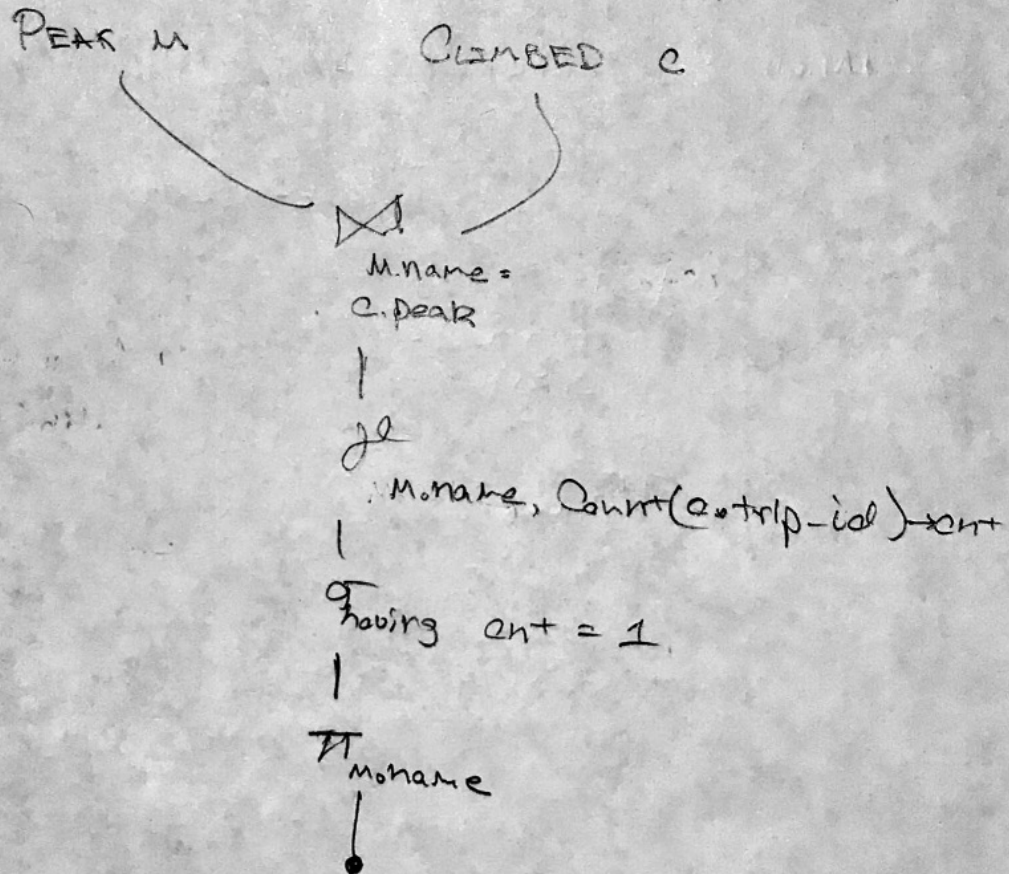 PEAK M
CLIMBED C
⋈
M.name =
C.peak
γ
M.name, Count(C.trip-id)→cnt
σ having cnt = 1
π M.name